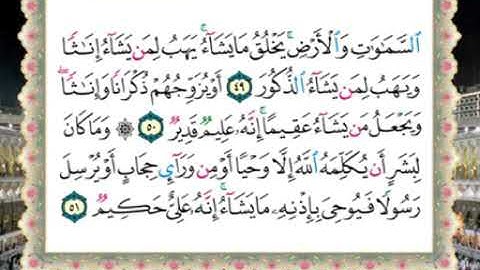 السَّمَـٰوَٰتِ وَالْأَرْضِ ۚ يَخْلُقُ مَا يَشَآءُ ۚ يَهَبُ لِمَن يَشَآءُ إِنَـٰثًا
وَيَهَبُ لِمَن يَشَآءُ الذُّكُورَ ٤٩ أَوْ يُزَوِّجُهُمْ ذُكْرَانًا وَإِنَـٰثًا ۖ
وَيَجْعَلُ مَن يَشَآءُ عَقِيمًا ۚ إِنَّهُۥ عَلِيمٌ قَدِيرٌ ٥٠ ۞ وَمَا كَانَ
لِبَشَرٍ أَن يُكَلِّمَهُ اللَّهُ إِلَّا وَحْيًا أَوْ مِن وَرَآئِ حِجَابٍ أَوْ يُرْسِلَ
رَسُولًا فَيُوحِىَ بِإِذْنِهِۦ مَا يَشَآءُ ۚ إِنَّهُۥ عَلِىٌّ حَكِيمٌ ٥١